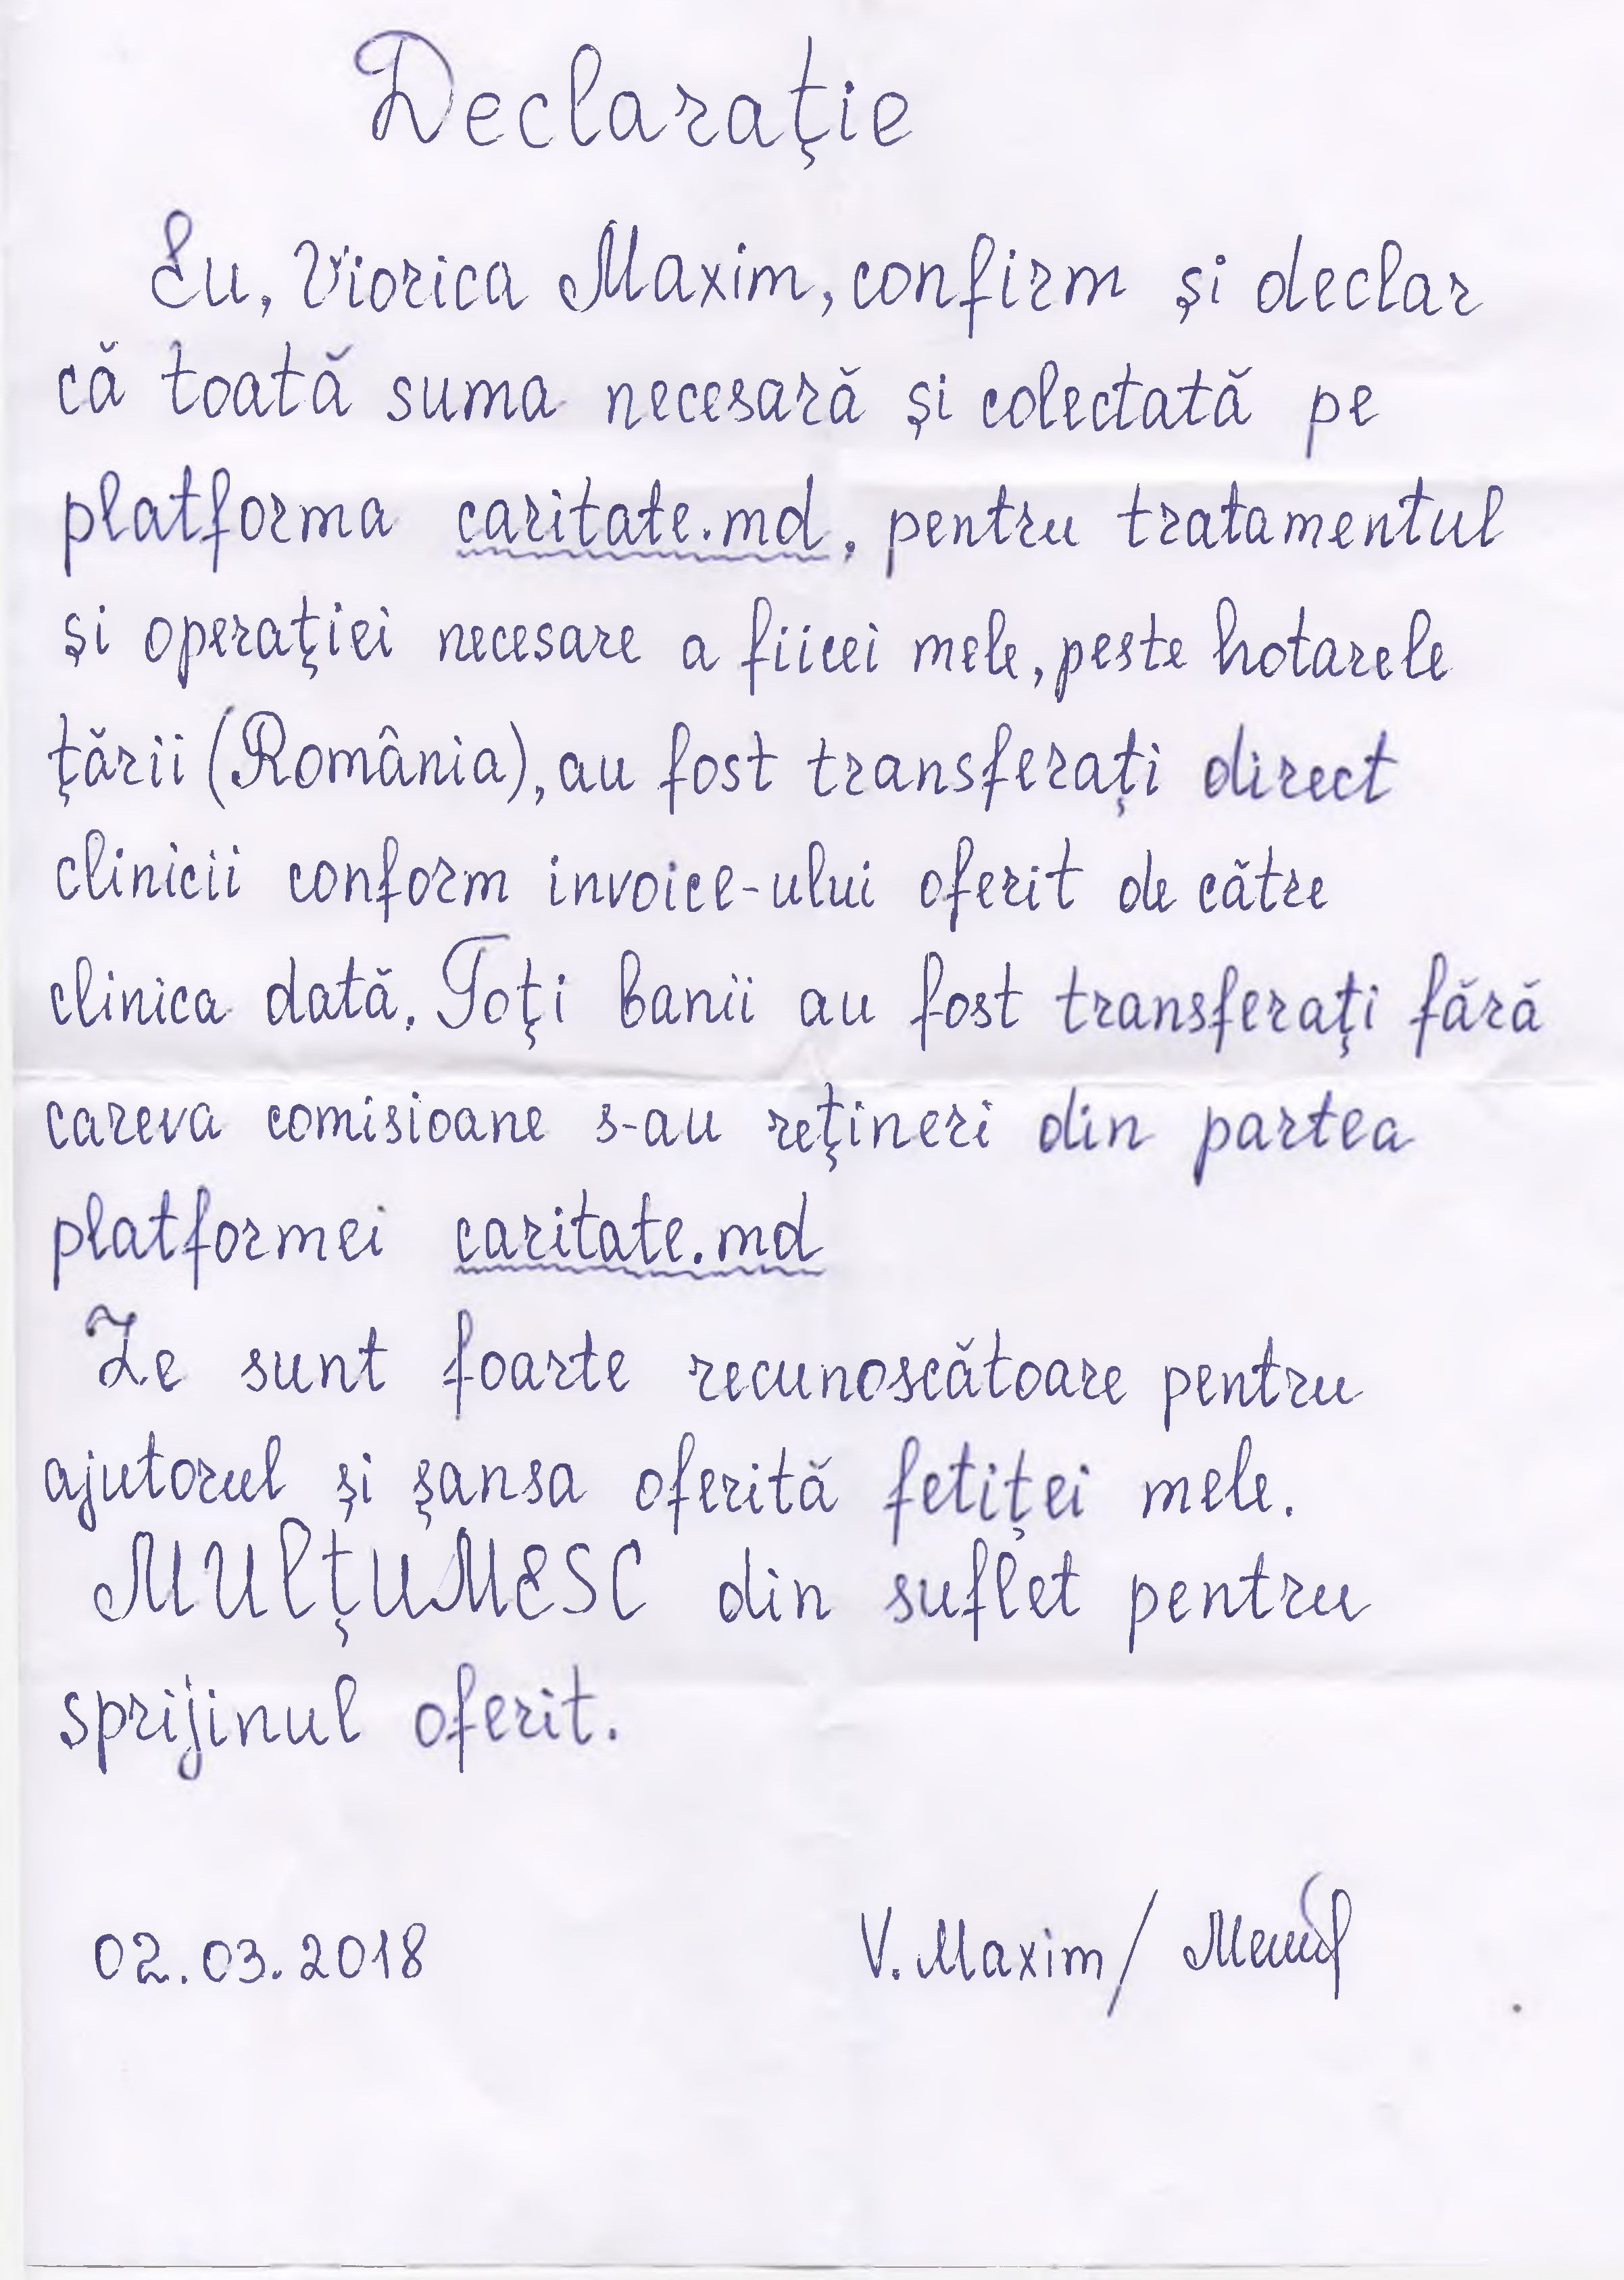 Declarație
Eu, Viorica Maxim, confirm și declar
că toată suma necesară și colectată pe
platforma caritate.md, pentru tratamentul
și operației necesare a fiicei mele, peste hotarele
țării (România), au fost transferați direct
clinicii conform invoice-ului oferit de către
clinica dată. Toți banii au fost transferați fără
careva comisioane s-au rețineri din partea
platformei caritate.md
Le sunt foarte recunoscătoare pentru
ajutorul și șansa oferită fetiței mele.
MULȚUMESC din suflet pentru
sprijinul oferit.
02.03.2018 V. Maxim/